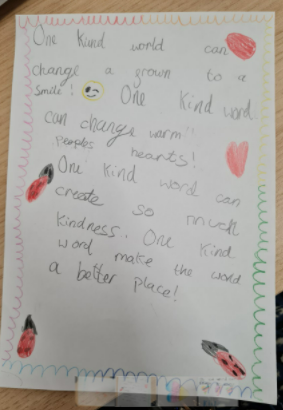 One Kind world can
change a grown to a
smile! One Kind word
can change warm
peoples hearts!
One Kind word can
create so much
Kindness.. One Kind
word make the word
a better place!